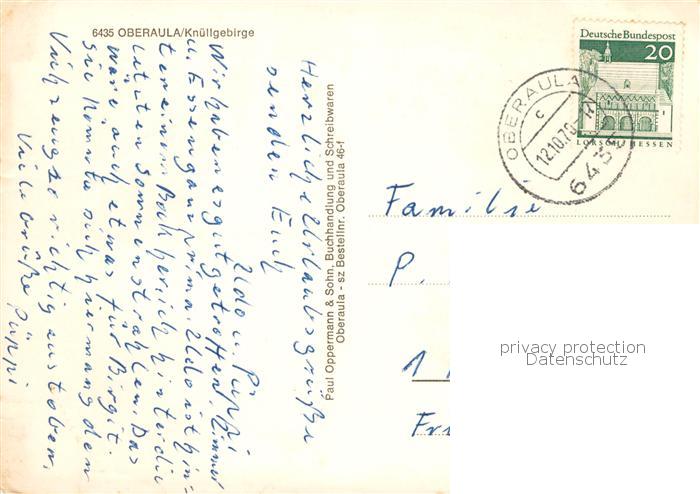 6435 OBERAULA/Knüllgebirge
Herzliche Urlaubsgrüße
senden Euch
Udo u. Püppi
Wir haben es gut getroffen, Zimmer
u. Essen ganz prima. Udo ist hin-
ter einem Bock her, ich hinter die
letzten Sonnenstrahlen. Das
wäre auch etwas für Birgit.
Sie könnte sich hier mang den
Viehzeugs so richtig austoben.
Viele Grüße Püppi
Paul Oppermann & Sohn, Buchhandlung und Schreibwaren
Oberaula - sz Bestellnr. Oberaula 46-f
Deutsche Bundespost
20
LORSCH/HESSEN
OBERAULA
c
12.10.70
6435
Familie
P.
1
privacy protection
Datenschutz